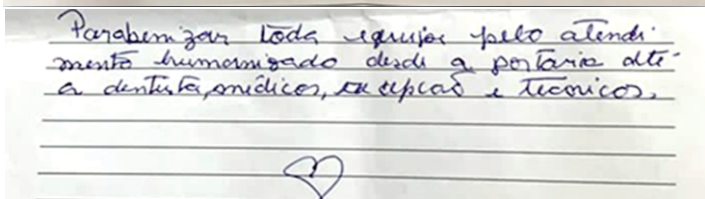 Parabenizar toda equipe pelo atendi-
mento humanizado desde a portaria até
a dentista, médicos, recepcao e tecnicos.